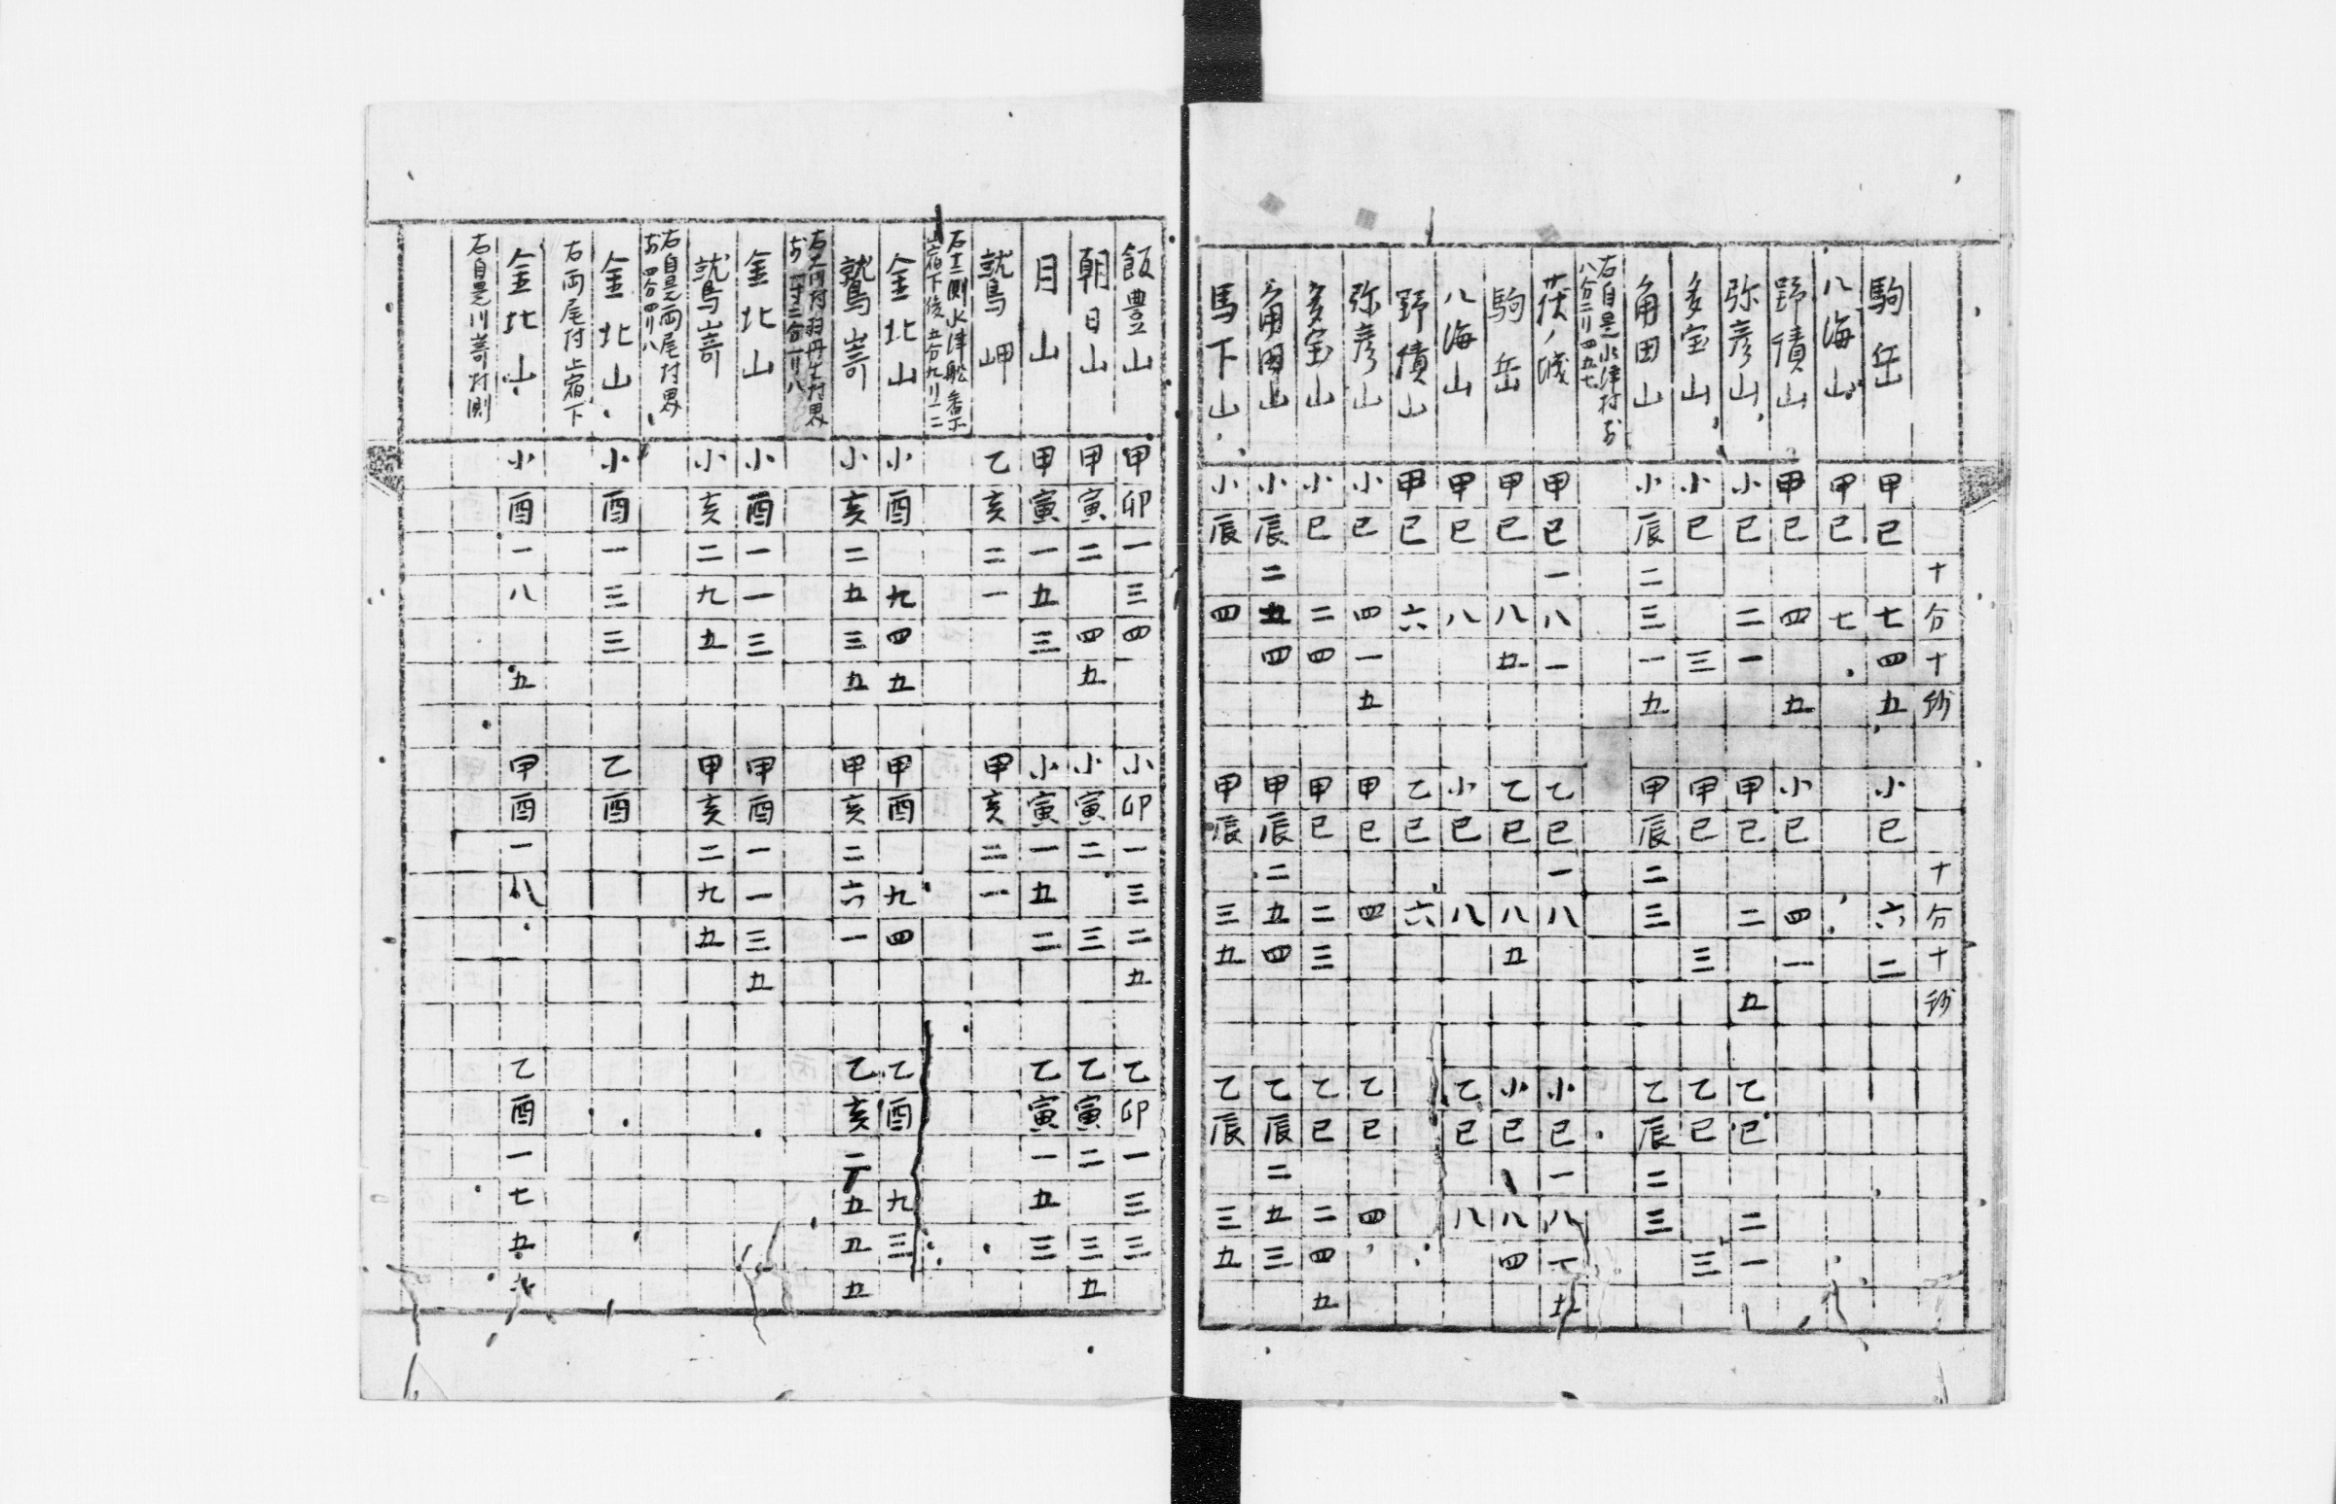 十分十秒 十分十秒
駒岳 甲巳 七四五 小巳 六二
八海山 甲巳 七
野積山 甲巳 四 五 小巳 四一
弥彦山 小巳 二一 甲巳 二 五 乙巳 二一
多宝山 小巳 三 甲巳 三 乙巳 三
角田山 小辰二三一五 甲辰二三 乙辰二三
右自是水津村
茯ノ浅 甲巳一八一 乙巳一八 小巳一八
駒岳 甲巳 八五 乙巳 八五 小巳 八四
八海山 甲巳 八 小巳 八 乙巳 八
野積山 甲巳 六 乙巳 六
弥彦山 小巳 四一五 甲巳 四 乙巳 四
多宝山 小巳 二四 甲巳 二三 乙巳 二四五
角田山 小辰二五四 甲辰二五四 乙辰二五三
馬下山 小辰 四 甲辰 三五 乙辰 三五
飯豊山 甲卯一三四 小卯一三二五 乙卯一三三
朝日山 甲寅二 四五 小寅二 三 乙寅二 三五
月山 甲寅一五三 小寅一五二 乙寅一五三
鷲岬 乙亥二一 甲亥二一
金北山 小酉 九四五 甲酉 九四 乙酉 九三
鷲嵜 小亥二五三五 甲亥二六一 乙亥二五五五
金北山 小酉一一三 甲酉一一三五
鷲嵜 小亥二九五 甲亥二九五
右自是両尾村界
金北山 小酉一三三 乙酉
右両尾村止宿下
金北山 小酉一八 五 甲酉一八 乙酉一七五
右自是川嵜村測